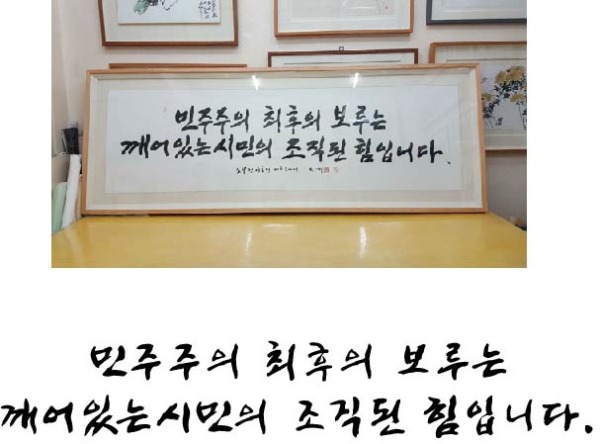 민주주의 최후의 보루는
깨어있는시민의 조직된 힘입니다.
민주주의 최후의 보루는
깨어있는시민의 조직된 힘입니다.